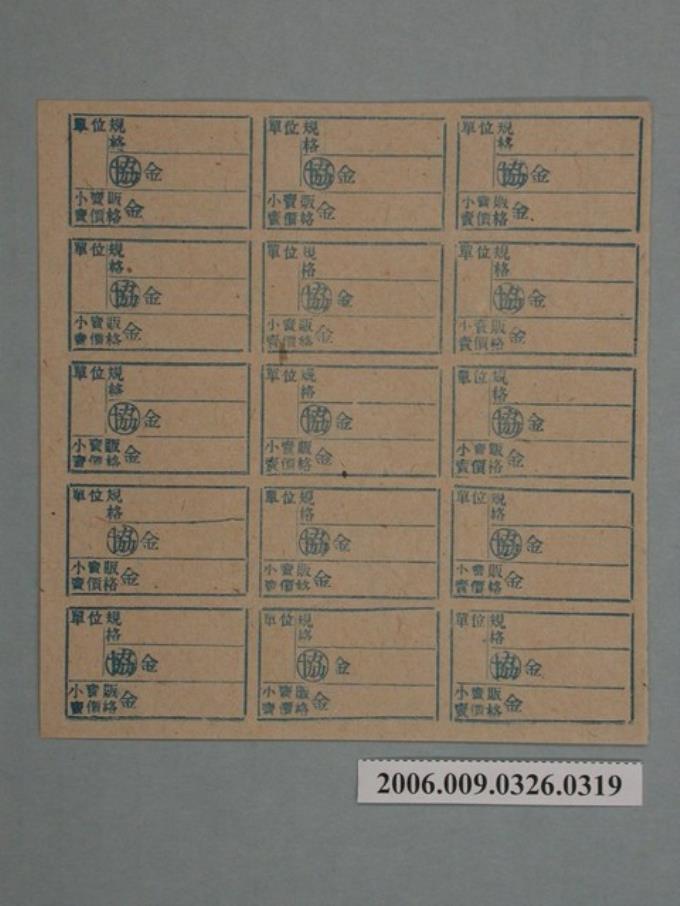 單位規
格
協 金
小賣販
賣價格 金
單位規
格
協 金
小賣販
賣價格 金
單位規
格
協 金
小賣販
賣價格 金
單位規
格
協 金
小賣販
賣價格 金
單位規
格
協 金
小賣販
賣價格 金
單位規
格
協 金
小賣販
賣價格 金
單位規
格
協 金
小賣販
賣價格 金
單位規
格
協 金
小賣販
賣價格 金
單位規
格
協 金
小賣販
賣價格 金
單位規
格
協 金
小賣販
賣價格 金
單位規
格
協 金
小賣販
賣價格 金
單位規
格
協 金
小賣販
賣價格 金
單位規
格
協 金
小賣販
賣價格 金
單位規
格
協 金
小賣販
賣價格 金
單位規
格
協 金
小賣販
賣價格 金
2006.009.0326.0319